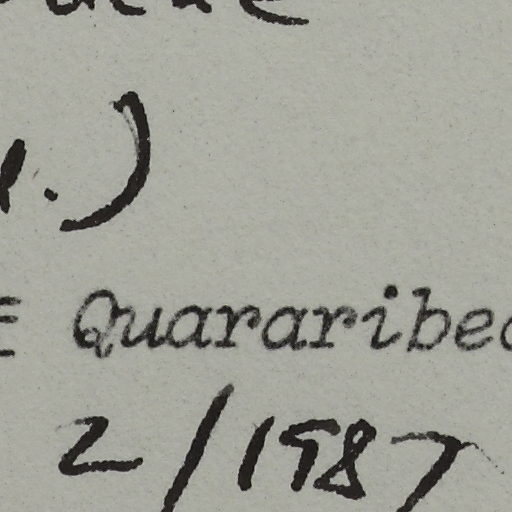 .)
Quararibea
2/1987